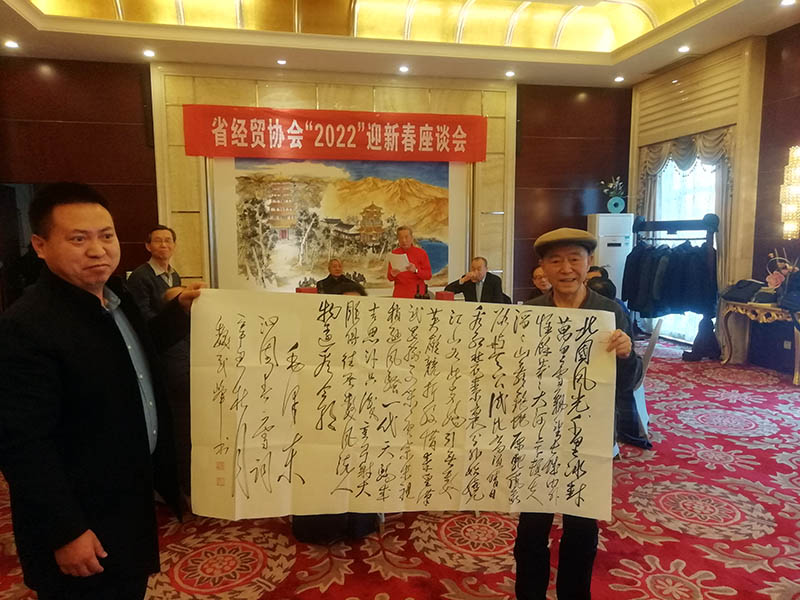 省经贸协会“2022”迎新春座谈会
北国风光千里冰封
萬里雪飘望长城内外
惟馀莽莽大河上下顿失
滔滔山舞银蛇原驰蜡象
欲与天公试比高须晴日
看红装素裹分外妖娆
江山如此多娇引无数
英雄竞折腰惜秦皇汉
武略输文采唐宗宋祖
稍逊风骚一代天骄成
吉思汗只识弯弓射大
雕俱往矣数风流人
物还看今朝
毛泽东
沁园春雪词
辛丑秋月